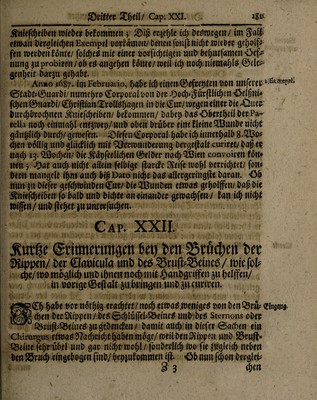 Dritter Theil / Cap. XXI. 181
Kniescheiben wieder bekommen; Diß erzehle ich deswegen / im Fall
etwan dergleichen Exempel vorkämen / denen sonst nicht wieder geholf-
fen werden könte / solches mit einer vorsichtigen und behutsamen Oeff-
nung zu probiren / ob es angehen könte / weil ich noch niemahls Gele-
genheit darzu gehabt.
Anno 1687. im Februario, habe ich einen Gefreyten von unserer
Stadt-Guardi / nunmehro Corporal von der Hoch-Fürstlichen Oelßni-
schen Guardi / Christian Trollshagen in die Cur / wegen einer die Quer
durchbrochnen Kniescheiben / bekommen / dabey das Obertheil der Pa-
tella noch einmahl entzwey / und oben drüber eine kleine Wunde nicht
gäntzlich durch / gewesen. Diesen Corporal habe ich innerhalb 8. Wo-
chen völlig und glücklich mit Verwunderung dergestalt curiret / daß er
nach 13. Wochen / die Käyserlichen Gelder nach Wien convoirn kön-
nen; Hat auch nicht allein selbige starcke Reise wohl verrichtet / son-
dern mangelt ihm auch biß Dato nicht das allergeringste daran. Ob
nun zu dieser geschwinden Cur / die Wunden etwas geholffen / daß die
Kniescheiben so bald und dichte an einander gewachsen / kan ich nicht
wissen / und stehet zu untersuchen.
CAP. XXII.
Kurtze Erinnerungen bey den Brüchen der
Rippen / der Clavicula und des Brust-Beines / wie sol-
che / wo möglich und ihnen noch mit Handgriffen zu helffen /
in vorige Gestalt zu bringen und zu curiren.
ICh habe vor nöthig erachtet / noch etwas weniges von den Brü-
chen der Rippen / des Schlüssel-Beines und des Sternons oder
Brust-Beines zu gedencken / damit auch in dieser Sachen ein
Chirurgus etwas Nachricht haben möge / weil den Rippen und Brust-
Beine schr übel und gar nicht wohl / sonderlich wo sie zugleich neben
den Bruch eingebogen sind / beyzukommen ist. Ob nun schon derglei-
Z 3 chen